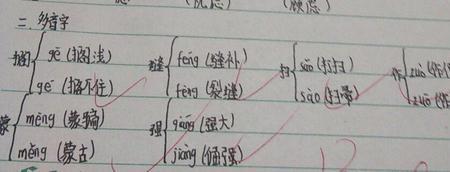 二、多音字
搁 gē (搁浅) 缝 féng (缝补) 扫 sǎo (打扫) 作
gé (搁不住) fèng (裂缝) sào (扫帚)
蒙 mēng (蒙骗) 强 qiáng (强大)
měng (蒙古) jiàng (倔强)